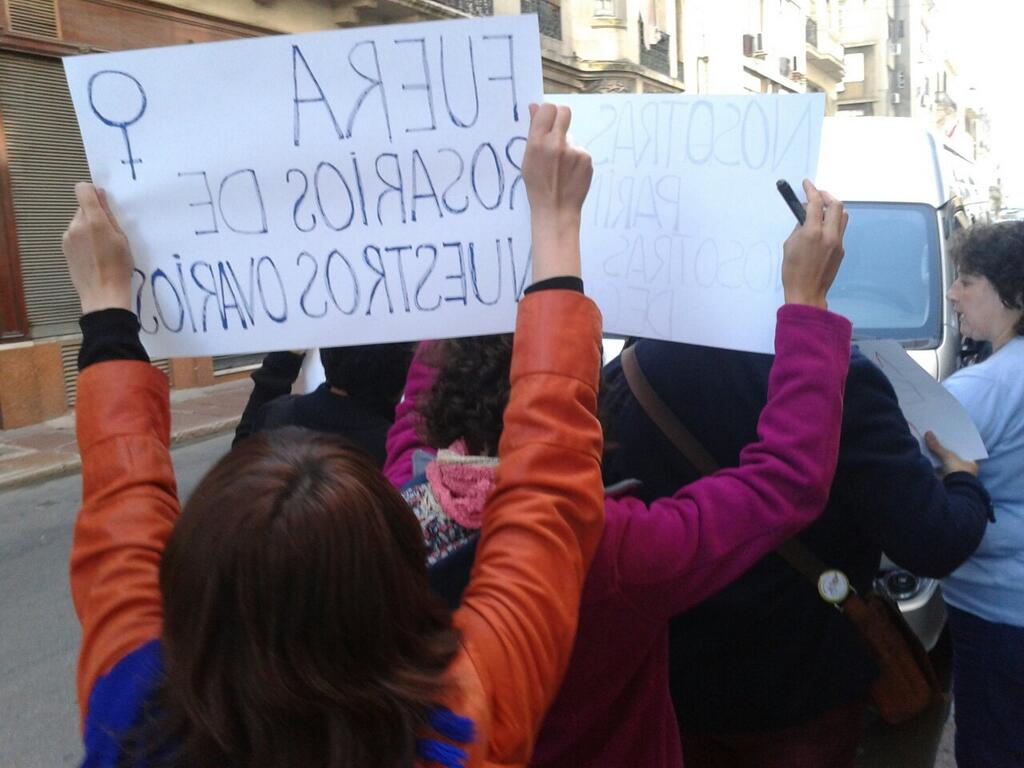 FUERA
ROSARIOS DE
NUESTROS OVARIOS
NOSOTRAS
PARI
NOSOTRAS
DEC